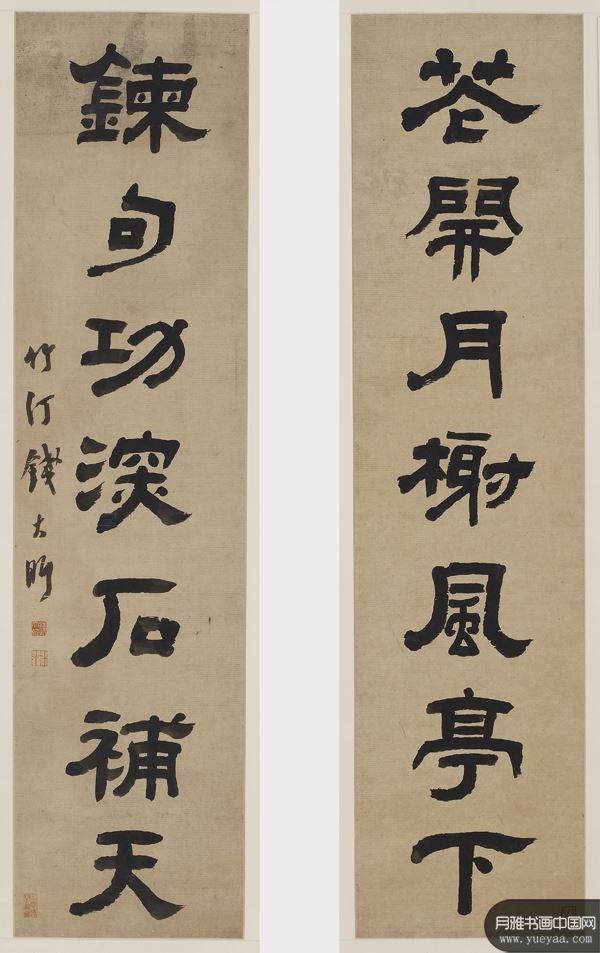 花開月榭風亭下
鍊句功深石補天
竹汀錢大昕
月雅书画中国网
www.yueyaa.com